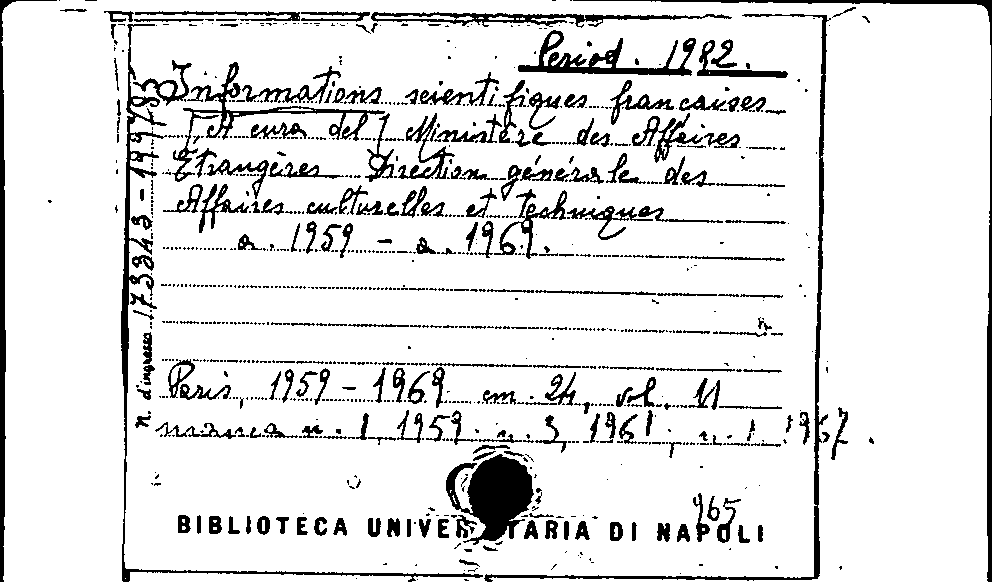 Period. 1982.
Informations scientifiques françaises
[A cura del] Ministère des Affaires
Etrangères Direction générale des
Affaires culturelles et techniques
a. 1959 - a. 1969.
Paris, 1959 - 1969 cm. 24, vol. 11
manca n. 1, 1959; n. 3, 1961; n. 1 1967.
n. d'ingresso
965
BIBLIOTECA UNIVER TARIA DI NAPOLI